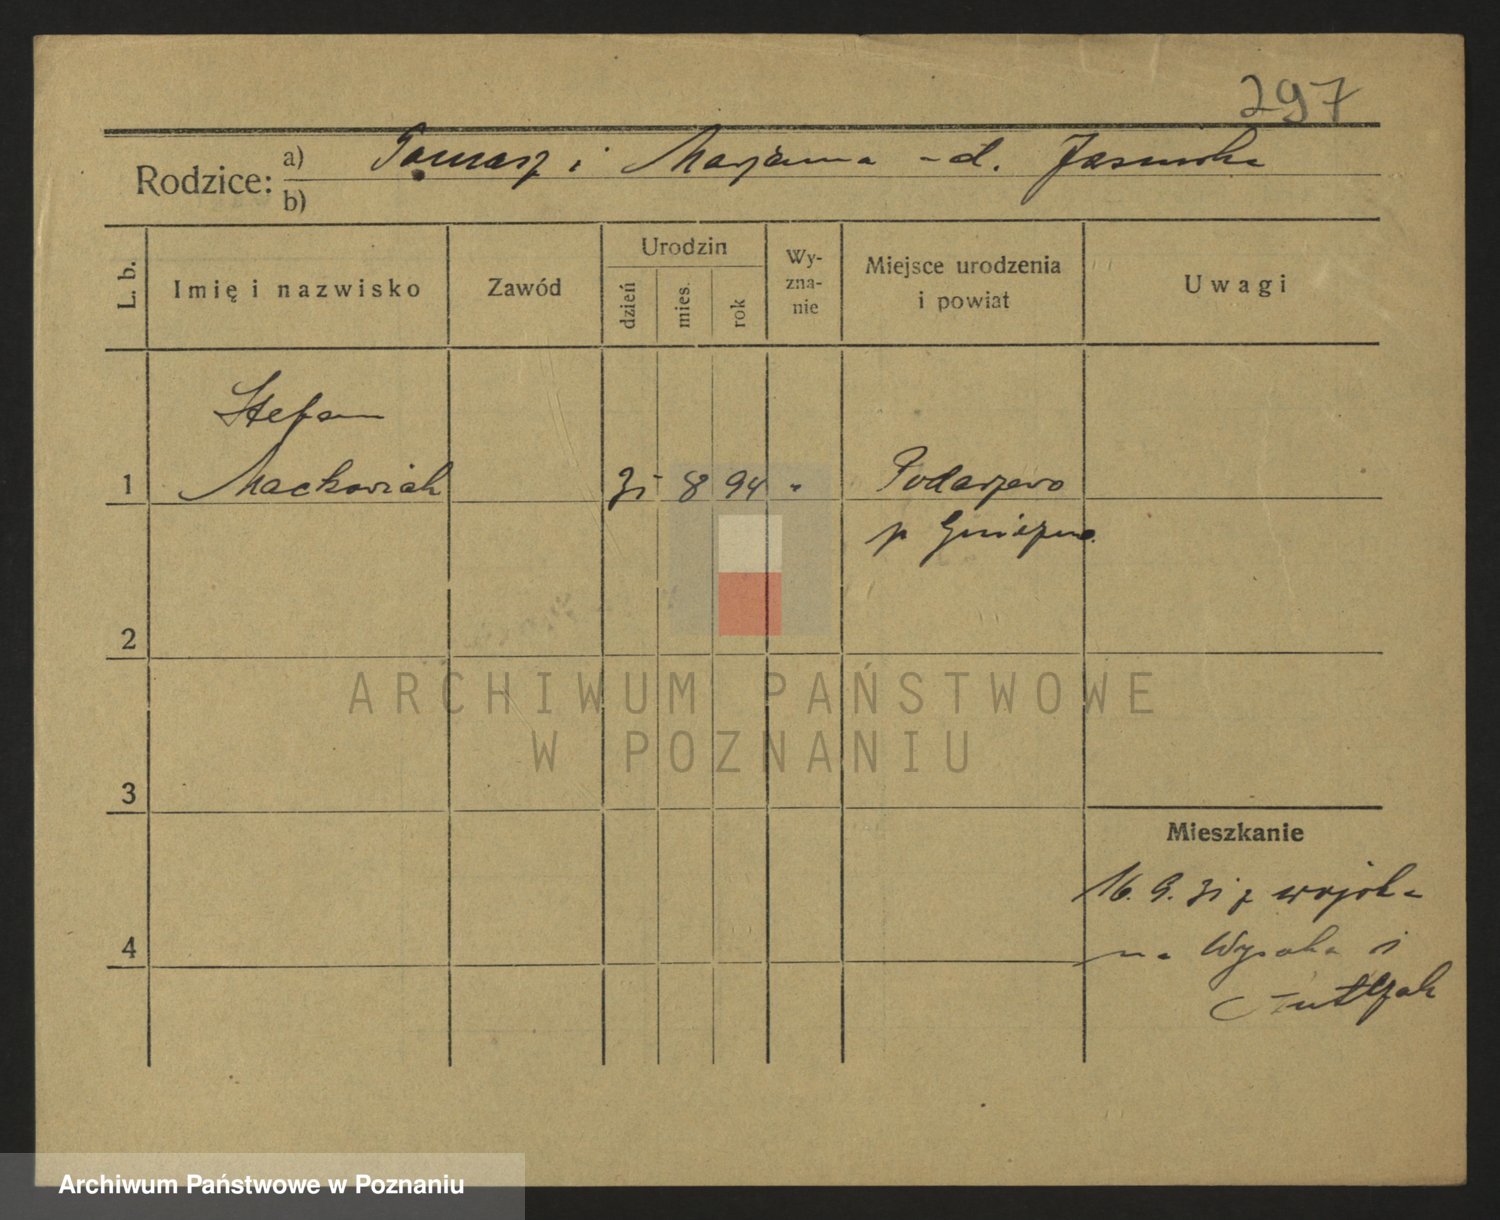 297
Rodzice: a) Tomasz i Marjanna - d. Jasinska
b)
L. b.
Imię i nazwisko
Zawód
Urodzin
dzień
mies.
rok
Wy-
zna-
nie
Miejsce urodzenia
i powiat
Uwagi
Stefan
1 Mackowiak 31 8 94 " Podarzewo
p Gniezno.
2
3
4
Mieszkanie
16. 9. 31 z wojska
na Wysoka 1
ARCHIWUM PAŃSTWOWE
W POZNANIU
Archiwum Państwowe w Poznaniu